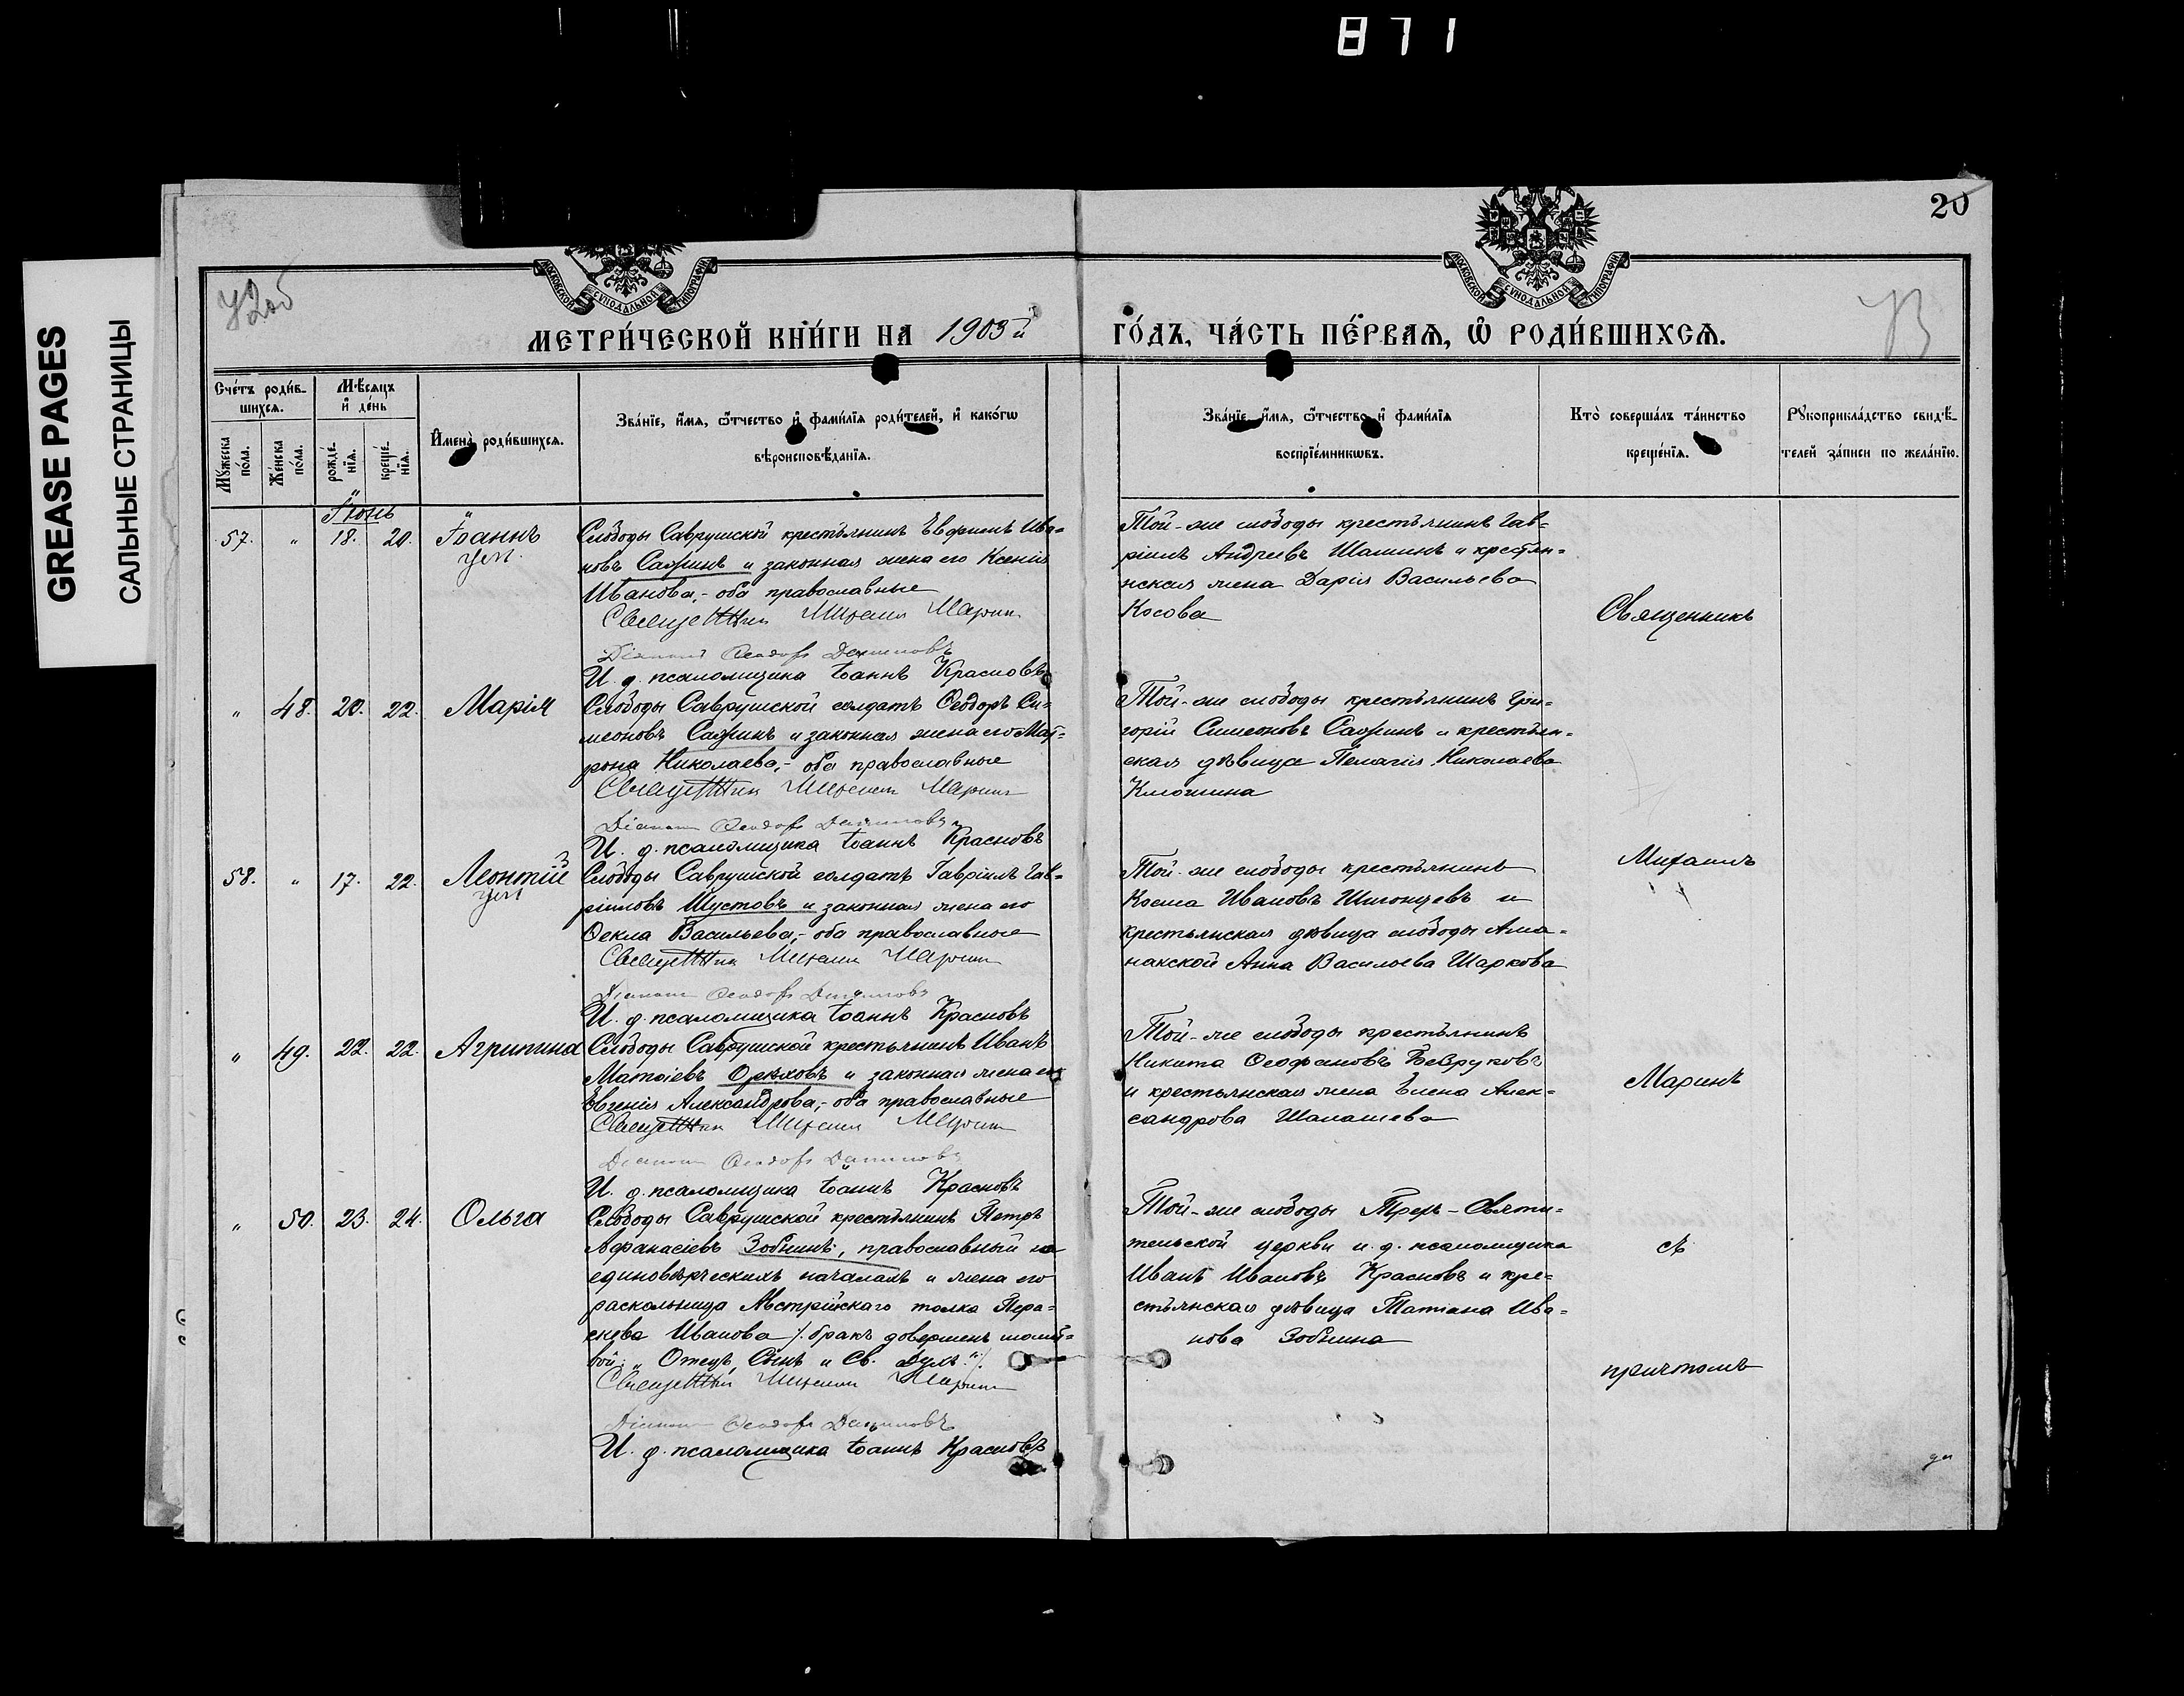 871
GREASE PAGES
САЛЬНЫЕ СТРАНИЦЫ
20
МОСКОВСКОЙ СУНОДАЛЬНОЙ ТИПОГРАФІИ
МОСКОВСКОЙ СУНОДАЛЬНОЙ ТИПОГРАФІИ
МЕТРИ́ЧЕСКОЙ КНИ́ГИ НА 1903 й
ГО́ДЪ, ЧА́СТЬ ПЕ́РВАѦ, Ѡ РОДИ́ВШИХСѦ.
Сче́тъ роди́в-
шихсѧ.
Мѣ́сѧцъ
и де́нь
Мꙋжеска по́ла.
Же́нска по́ла.
рожде́-
нїѧ.
креще́-
нїѧ.
Имена̀ роди́вшихсѧ.
Зва́нїе, и́мѧ, ѻ́тчество и фами́лїѧ роди́телей, и како́гѡ
вѣроисповѣ́данїѧ.
Зва́нїе, и́мѧ, ѻ́тчество и фами́лїѧ
воспрїе́мникѡвъ.
Кто̀ соверша́лъ та́инство
креще́нїѧ.
Рꙋкоприкла́дство свидѣ́-
телей за́писи по жела́нїю.
Іюнь
57. „ 18. 20. Іоаннъ
ум.
Слободы Саврушской крестьянинъ Евфимъ Ива-
новъ Сажинъ и законная жена его Ксенія
Иванова,- оба православные
Священникъ Михаилъ Маринъ
Діаконъ Ѳеодоръ Даниловъ
И. д. псаломщика Іоаннъ Красновъ
Той-же слободы крестьянинъ Гав-
ріилъ Андреевъ Шашинъ и крестьян-
нская жена Дарія Васильева
Косова
Священникъ
„ 48. 20. 22. Марія
Слободы Саврушской солдатъ Ѳеодоръ Си-
меоновъ Сажинъ и законная жена его Мат-
рона Николаева,- оба православные
Священникъ Михаилъ Маринъ
Діаконъ Ѳеодоръ Даниловъ
И. д. псаломщика Іоаннъ Красновъ
Той-же слободы крестьянинъ Гри-
горій Симеоновъ Сажинъ и крестьян-
ская дѣвица Пелагія Николаева
58. „ 17. 22. Леонтій
ум
Слободы Саврушской солдатъ Гавріилъ Гав-
ріиловъ Шустовъ и законная жена его
Ѳекла Васильева,- оба православные
Священникъ Михаилъ Маринъ
Діаконъ Ѳеодоръ Даниловъ
И. д. псаломщика Іоаннъ Красновъ
Той-же слободы крестьянинъ
Косма Ивановъ и
крестьянская дѣвица слободы Ама-
накской Анна Васильева Шаркова
Михаилъ
„ 49. 22. 22. Агрипина
Слободы Саврушской крестьянинъ Иванъ
Матѳіевъ Орѣховъ и законная жена его
Евгенія Александрова,- оба православные
Священникъ Михаилъ Маринъ
Діаконъ Ѳеодоръ Даниловъ
И. д. псаломщика Іоаннъ Красновъ
Той-же слободы крестьянинъ
Никита Ѳеофановъ Безруковъ
и крестьянская жена Елена Алек-
сандрова Шалашева
Маринъ
„ 50. 23. 24. Ольга
Слободы Саврушской крестьянинъ Петръ
Аѳанасіевъ Зобнинъ, православный на
единовѣрческихъ началахъ и жена его
раскольница Австрійскаго толка Пара-
скева Иванова /: бракъ довершенъ молит-
вой: „Отецъ, Сынъ и Св. Духъ":/.
Священникъ Михаилъ Маринъ
Діаконъ Ѳеодоръ Даниловъ
И. д. псаломщика Іоаннъ Красновъ
Той-же слободы Трех-Святи-
тельской церкви и. д. псаломщика
Иванъ Ивановъ Красновъ и кре-
стьянская дѣвица Татіана Ива-
нова Зобнина
съ
причтомъ